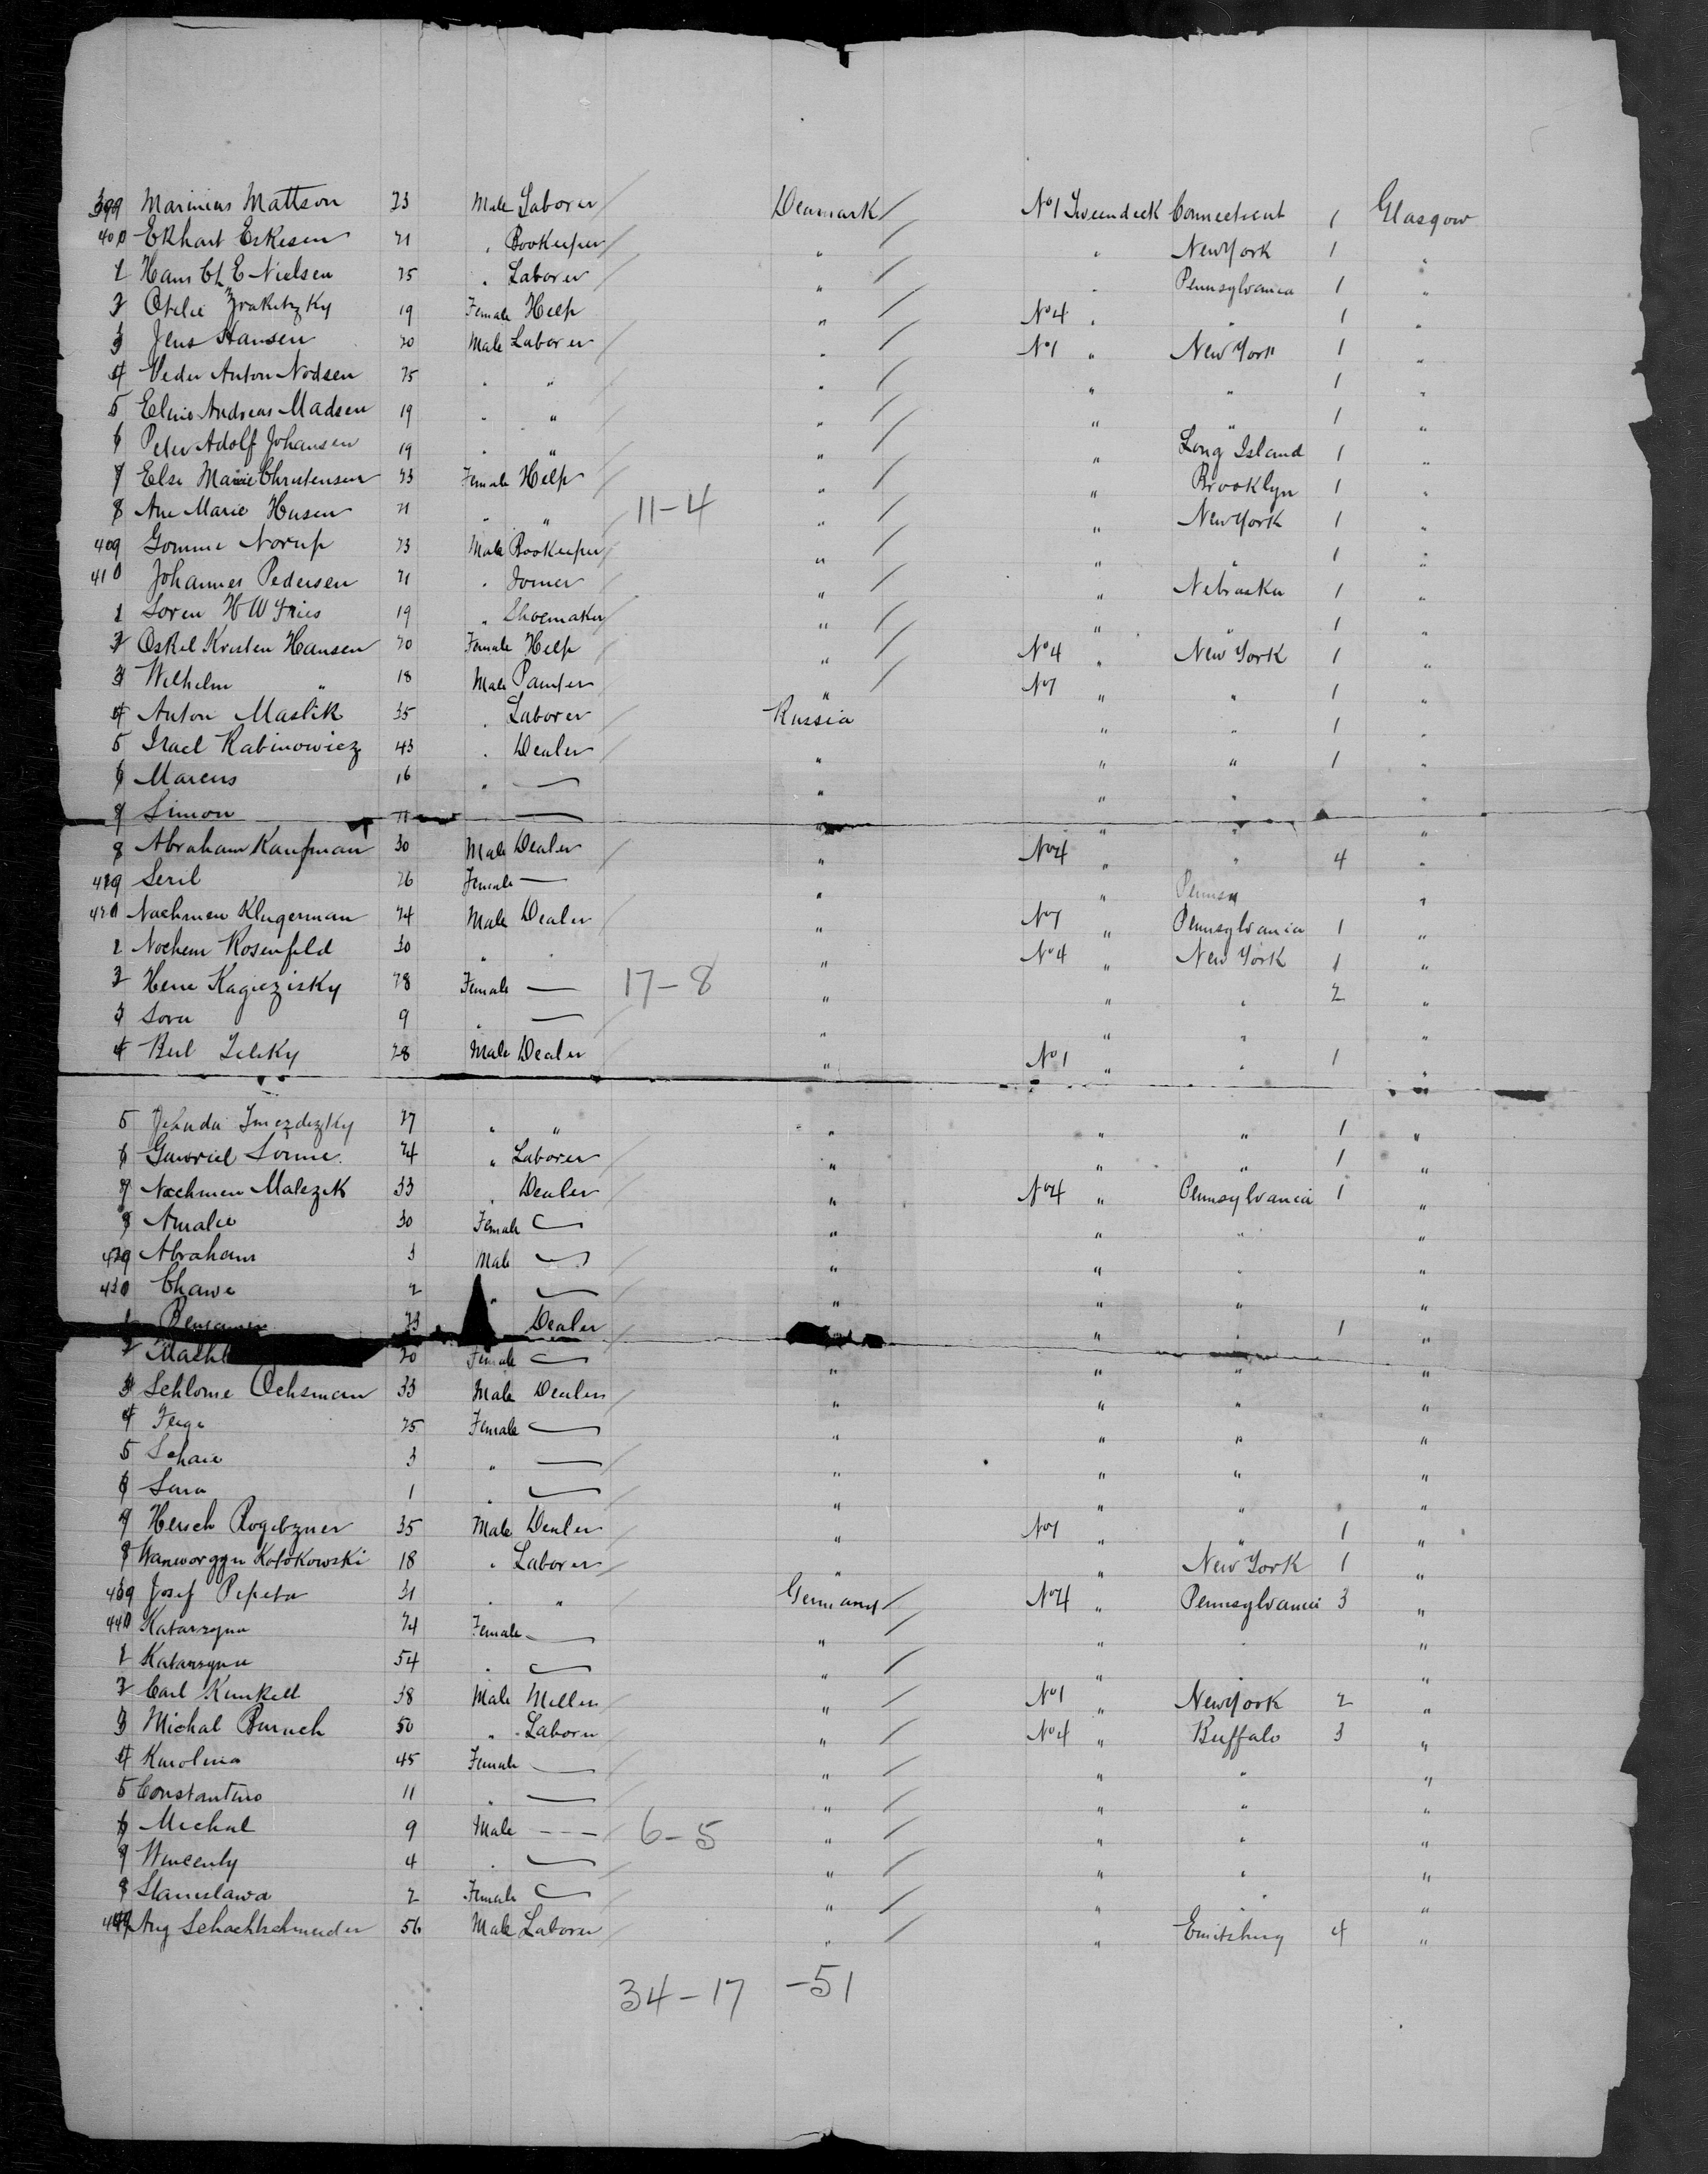 399 Marinius Mattson 23 Male Laborer Denmark No 1 Tweendeck Connecticut 1 Glasgow
400 Ekhart Erkesen 21 " Bookeeper " " New York 1 "
1 Hans Ch E Nielsen 25 " Laborer " " Pennsylvania 1 "
2 Otelie 19 Female Help " No 4 " " 1 "
3 Jens Hansen 20 Male Laborer " No 1 " New York 1 "
4 Peder Anton Nodsen 25 " " " " " 1 "
5 Andreas Madsen 19 " " " " " 1 "
6 Peter Adolf Johansen 19 " " " " Long Island 1 "
7 Else Marie Christensen 23 Female Help " " Brooklyn 1 "
8 Ane Marie Husen 21 " " 11-4 " " New York 1 "
409 Gomme Norup 23 Male Bookeeper " " " 1 "
410 Johannes Pedersen 21 " Joiner " " Nebraska 1 "
1 Soren H W Fries 19 " Shoemaker " " " 1 "
2 Oskel Kristen Hansen 20 Female Help " No 4 " New York 1 "
3 Wilhelm " 18 Male Painter " No 1 " " 1 "
4 Anton Maslik 35 " Laborer Russia " " 1 "
5 Israel Rabinowicz 43 " Dealer " " " 1 "
6 Marcus 16 " — " " " "
7 Simon 11 — " " " "
8 Abraham Kaufman 30 Male Dealer " No 4 " " 4 "
419 Seril 26 Female — " " Pennsy "
420 Nachmen Klugerman 24 Male Dealer " No 1 " Pennsylvania 1 "
1 Nochem Rosenfeld 30 " " " No 4 " New York 1 "
2 Hene Kagiczisky 28 Female — 17-8 " " " 2 "
3 Sora 9 " — " " " "
4 Berl 28 Male Dealer " No 1 " " 1 "
5 Jehuda 27 " " " " " 1 "
6 Gawriel 24 " Laborer " " " 1 "
7 Nachmen Malezik 33 " Dealer " No 4 " Pennsylvania 1 "
8 Amalie 30 Female — " " " "
429 Abraham 3 Male — " " " "
430 Chawe 2 " — " " " "
1 Benjamen 23 Dealer " " " 1 "
2 20 Female — " " " "
3 Schlome Ochsman 33 Male Dealer " " " "
4 Feige 25 Female — " " " "
5 Schaie 3 " — " " " "
6 Sara 1 " — " " " "
7 Hersch 35 Male Dealer " No 1 " " 1 "
8 Kolokowski 18 " Laborer " " New York 1 "
439 Josef Pepeta 31 " " Germany No 4 " Pennsylvania 3 "
440 Katarzyna 24 Female — " " " "
1 Katarzyna 54 " — " " "
2 Carl Kunkell 38 Male Miller " No 1 " New York 2 "
3 Michal Buruch 50 " Laborer " No 4 " Buffalo 3 "
4 Karolina 45 Female — " " " "
5 Constantine 11 " — " " " "
6 Michal 9 Male --- 6-5 " " " "
7 Wincenty 4 " — " " " "
8 Stanislawa 2 Female — " " " "
449 Aug Schachtschneider 56 Male Laborer " " 4 "
34-17 -51